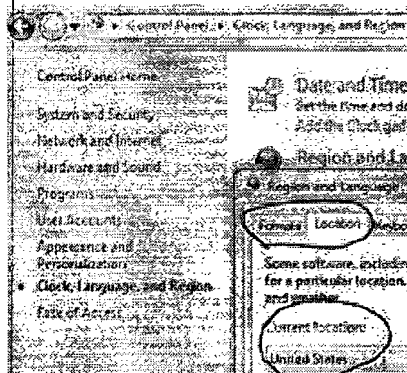 Control Panel ▸ Clock, Language, and Region
Control Panel Home
System and Security
Network and Internet
Hardware and Sound
Programs
User Accounts
Appearance and
Personalization
Clock, Language, and Region
Ease of Access
Date and Time
Set the time and d
Add the Clock gad
Region and La
Region and Language
Formats Location Keybo
Some software, includin
for a particular location.
and weather.
Current location:
United States